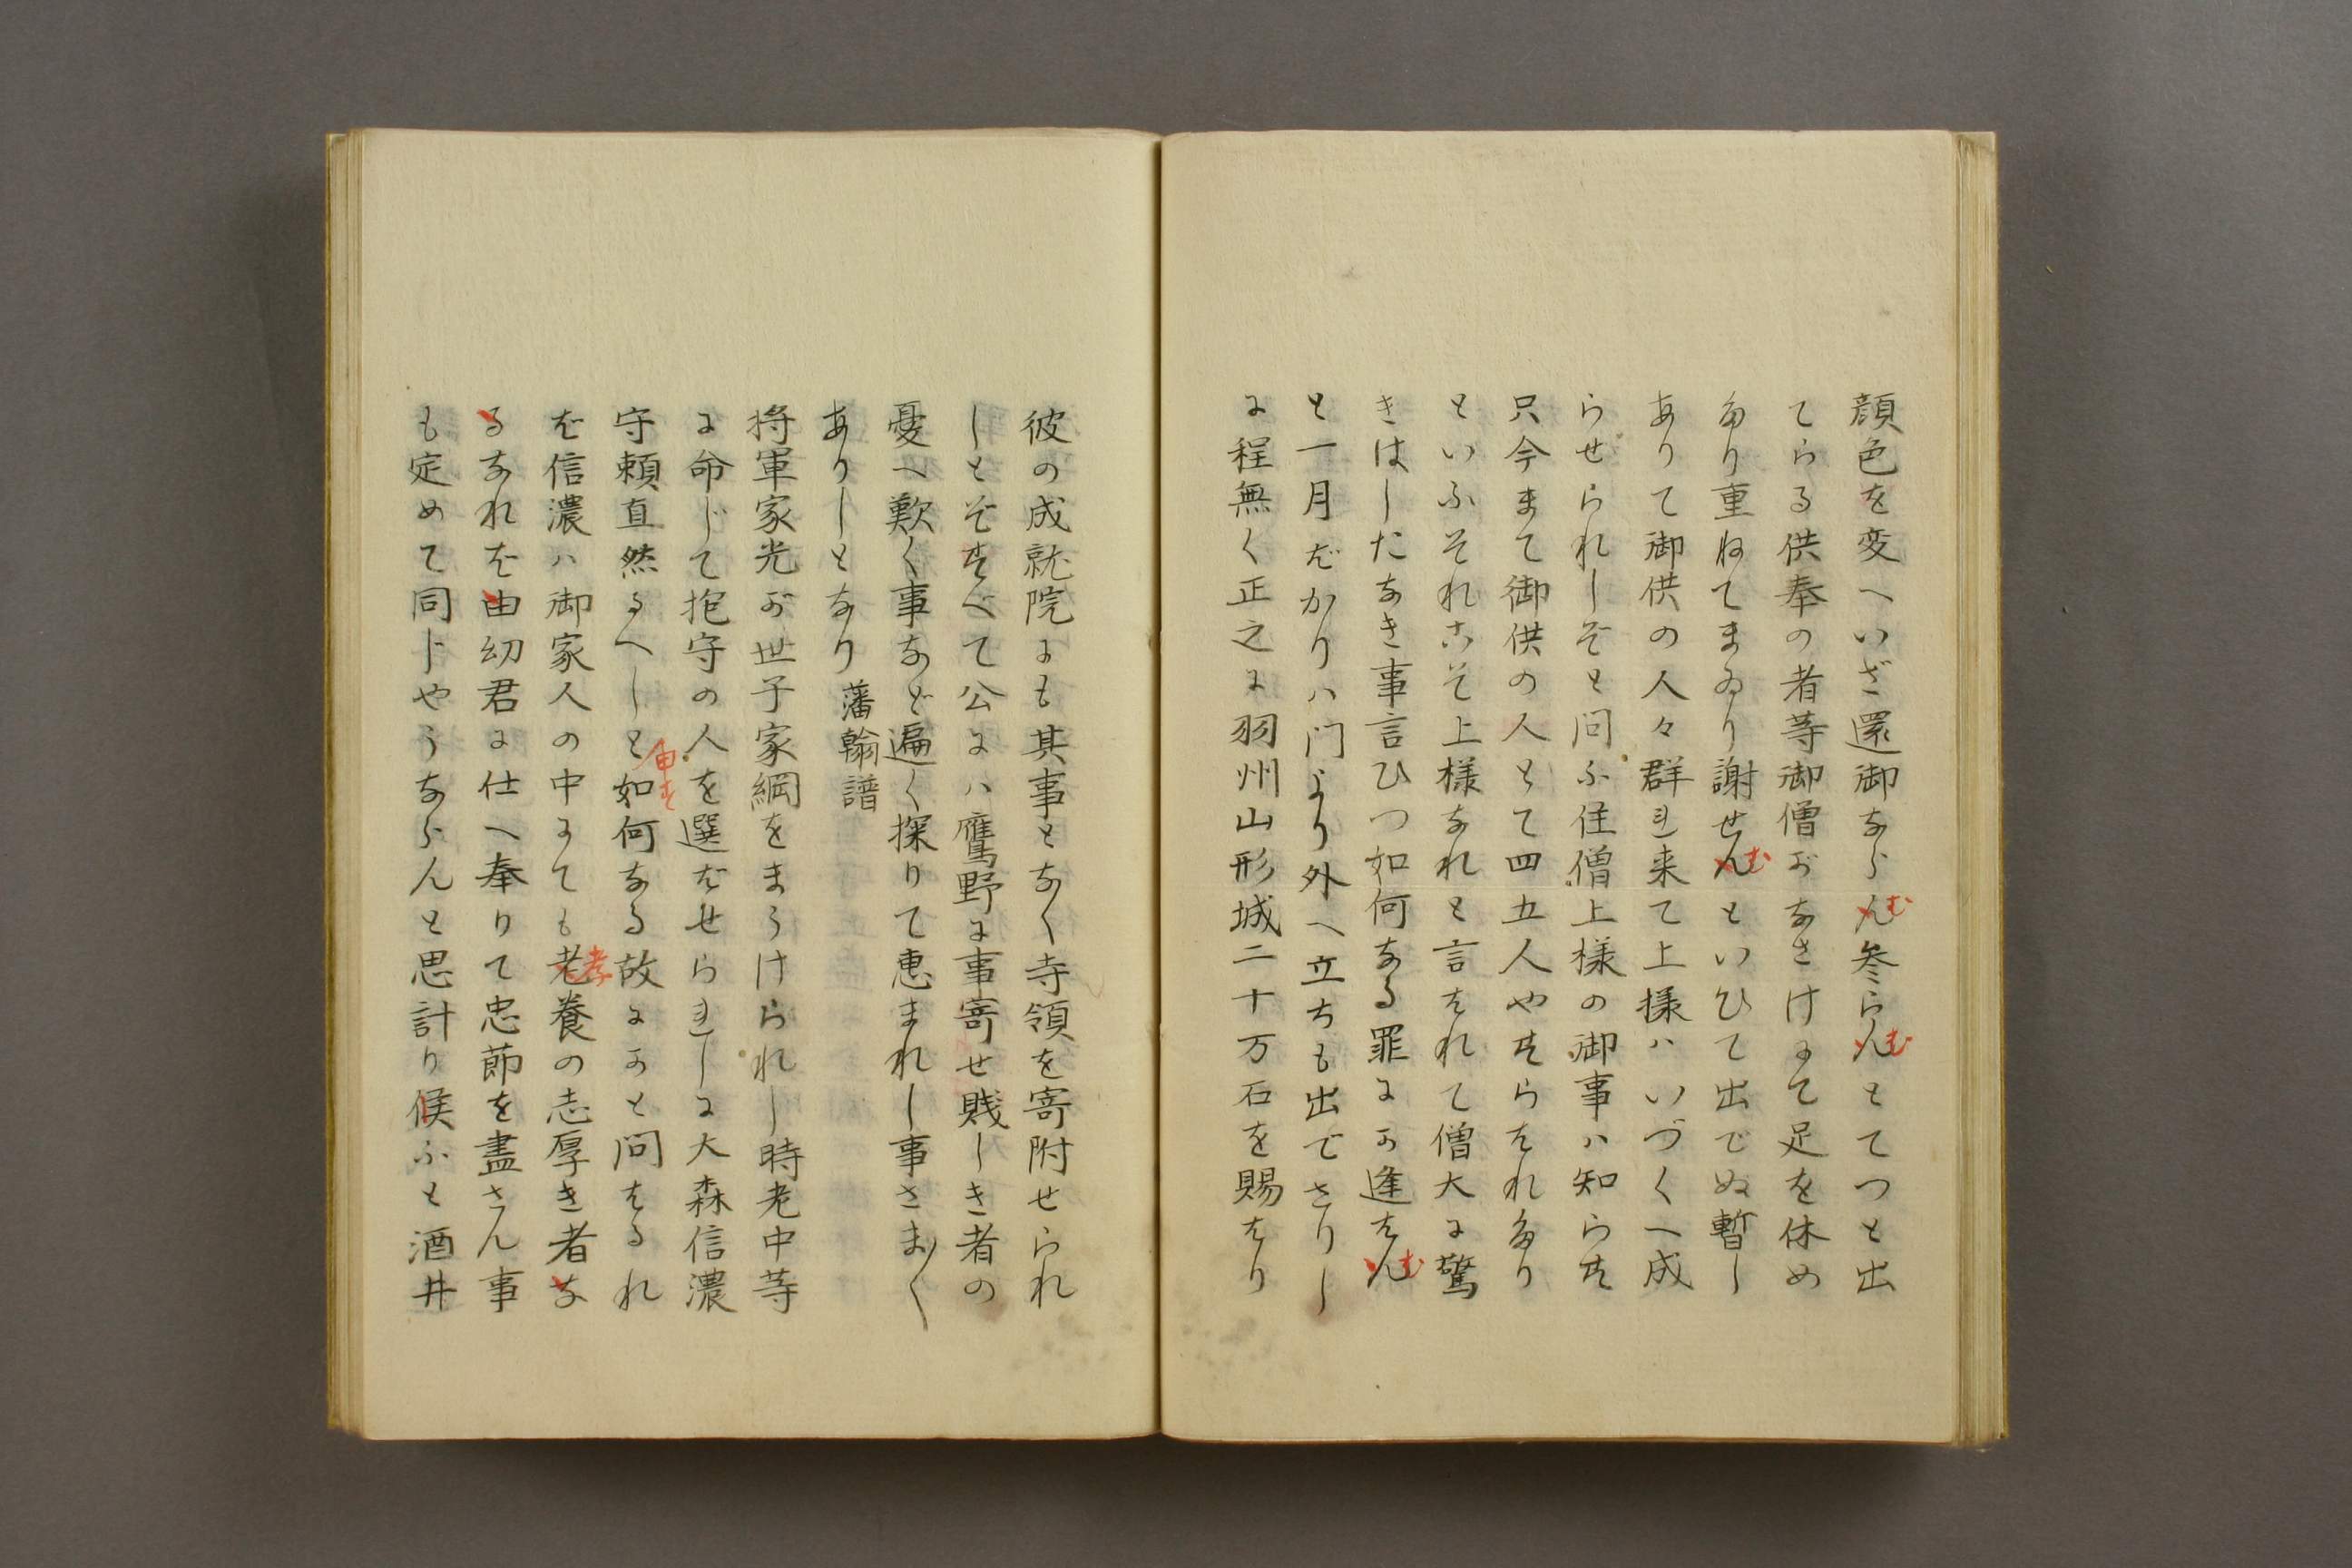 顔色を変へいざ還御ならん参らんとてつと出
む
む
てらる供奉の者等御僧がなさけにて足を休め
たり重ねてまゐり謝せんといひて出でぬ暫し
む
ありて御供の人々群れ来て上様ハいづくへ成
らせられしぞと問ふ住僧上様の御事ハ知らす
只今まて御供の人とて四五人やすらはれたり
といふそれこそ上様なれと言はれて僧大に驚
きはしたなき事言ひつ如何なる罪にか逢はん
む
と一月ばかりハ門より外へ立ちも出でさりし
に程無く正之に羽州山形城二十万石を賜はり
彼の成就院にも其事となく寺領を寄附せられ
しとぞすべて公にハ鷹野に事寄せ賎しき者の
憂へ歎く事など遍く探りて恵まれし事さま〲
ありしとなり 藩翰譜
将軍家光が世子家綱をまうけられし時老中等
に命じて抱守の人を選ばせられしに大森信濃
守頼直然るへしと如何なる故にかと問はるれ
申す
ば信濃ハ御家人の中にても老養の志厚き者な
孝
るなれば由幼君に仕へ奉りて忠節を盡さん事
も定めて同じやうならんと思計り候ふと酒井